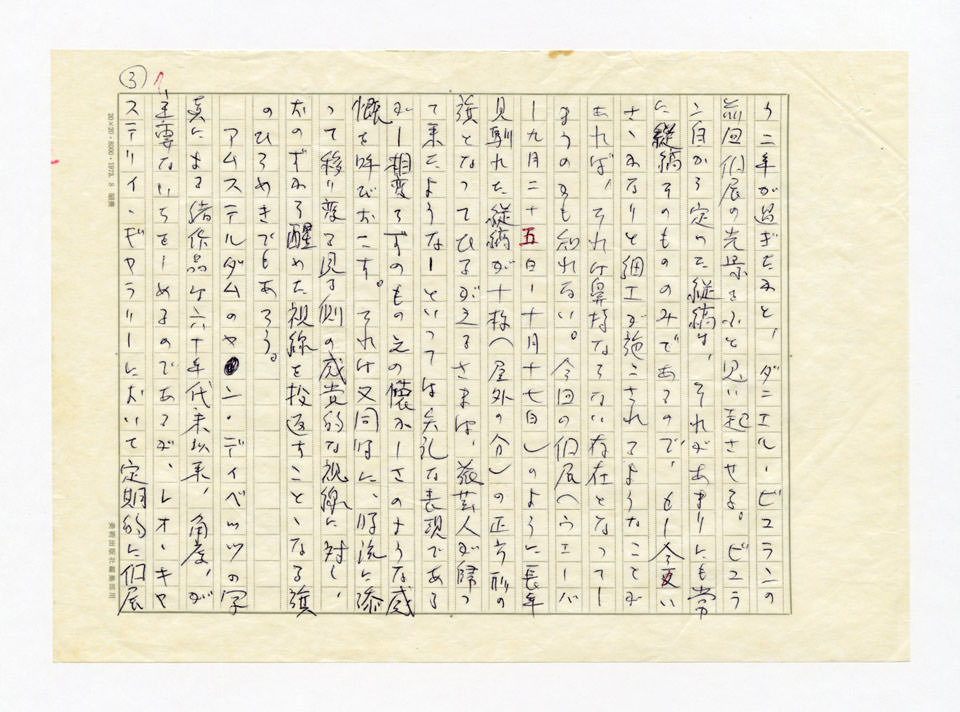 う二年が過ぎたかと、ダニエル・ビュランの
前回個展の光景をふと思い起させる。ビュラ
ン自から定めた縦縞は、それがあまりにも常
に縦縞そのもののみであるので、もし今更い
さゝかなりと細工が施こされてるようなことが
あれば、それは鼻持ならない存在となってし
まうのかも知れない。今回の個展(ウエーバ
ー九月二十五日ー十月十七日)のように長年
見馴れた縦縞が十枚(屋外の分)の正方形の
旗となってひるがえるさまは、旅芸人が帰っ
て来たようなーといっては失礼な表現である
がー相変らずのものへの懐かしさのような感
慨を呼びおこす。それは又同時に、時流に添
って移り変る見る側の感覚的な視線に対し、
おのずから醒めた視線を投返すことゝなる旗
のひらめきでもあろう。
アムステルダムのヤン・ディベッツの写
真による諸作品は六十年代末以来、角度、が
主要ないちをしめるのであるが、レオ・キャ
ステリイ・ギャラリーにおいて定期的に個展
③
20×20・6000・1973. 8
美術出版社編集部用